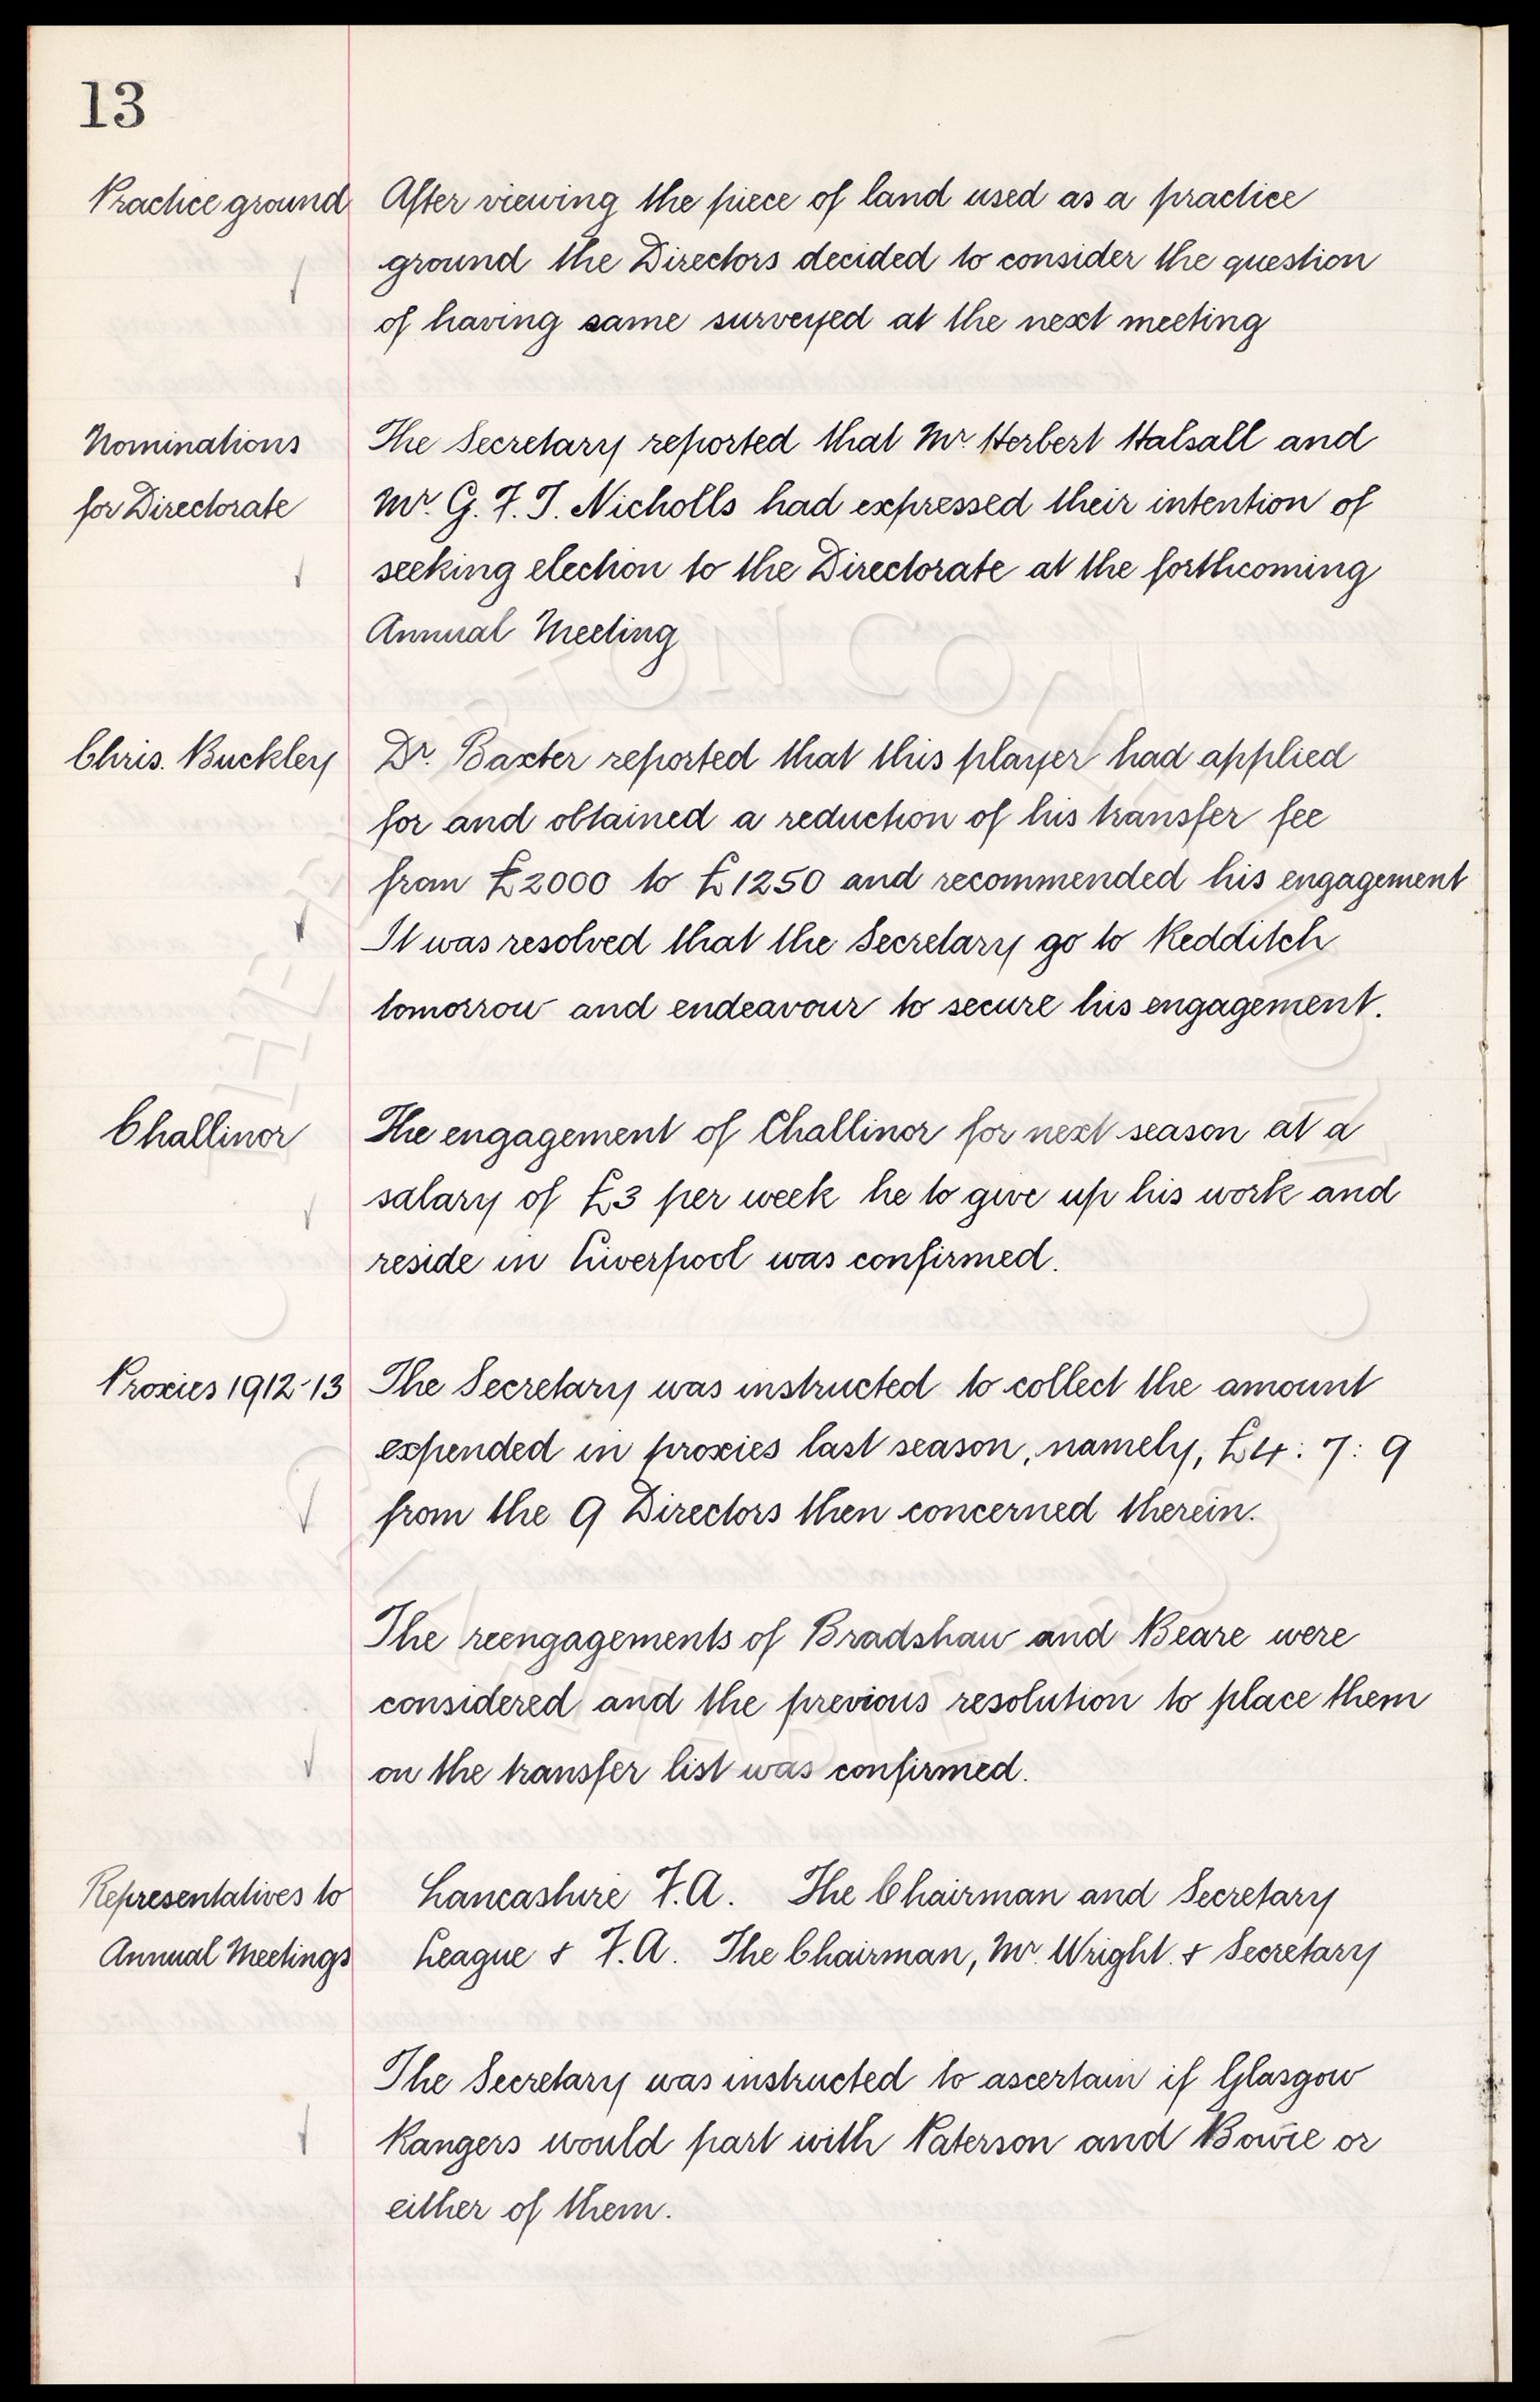 13
Practice ground After viewing the piece of land used as a practice
ground the Directors decided to consider the question
of having same surveyed at the next meeting
Nominations The Secretary reported that Mr Herbert Halsall and
for Directorate Mr. G. F. T. Nicholls had expressed their intention of
seeking election to the Directorate at the forthcoming
Annual Meeting
Chris. Buckley Dr. Baxter reported that this player had applied
for and obtained a reduction of his transfer fee
from £2000 to £1250 and recommended his engagement
It was resolved that the Secretary go to Redditch
tomorrow and endeavour to secure his engagement.
Challinor The engagement of Challinor for next season at a
salary of £3 per week he to give up his work and
reside in Liverpool was confirmed.
Proxies 1912-13 The Secretary was instructed to collect the amount
expended in proxies last season, namely, £4 : 7 : 9
from the 9 Directors then concerned therein.
The reengagements of Bradshaw and Beare were
considered and the previous resolution to place them
on the transfer list was confirmed.
Representatives to Lancashire F.A. The Chairman and Secretary
Annual Meetings League & F.A. The Chairman, Mr. Wright. & Secretary
The Secretary was instructed to ascertain if Glasgow
Rangers would part with Paterson and Bowie or
either of them.